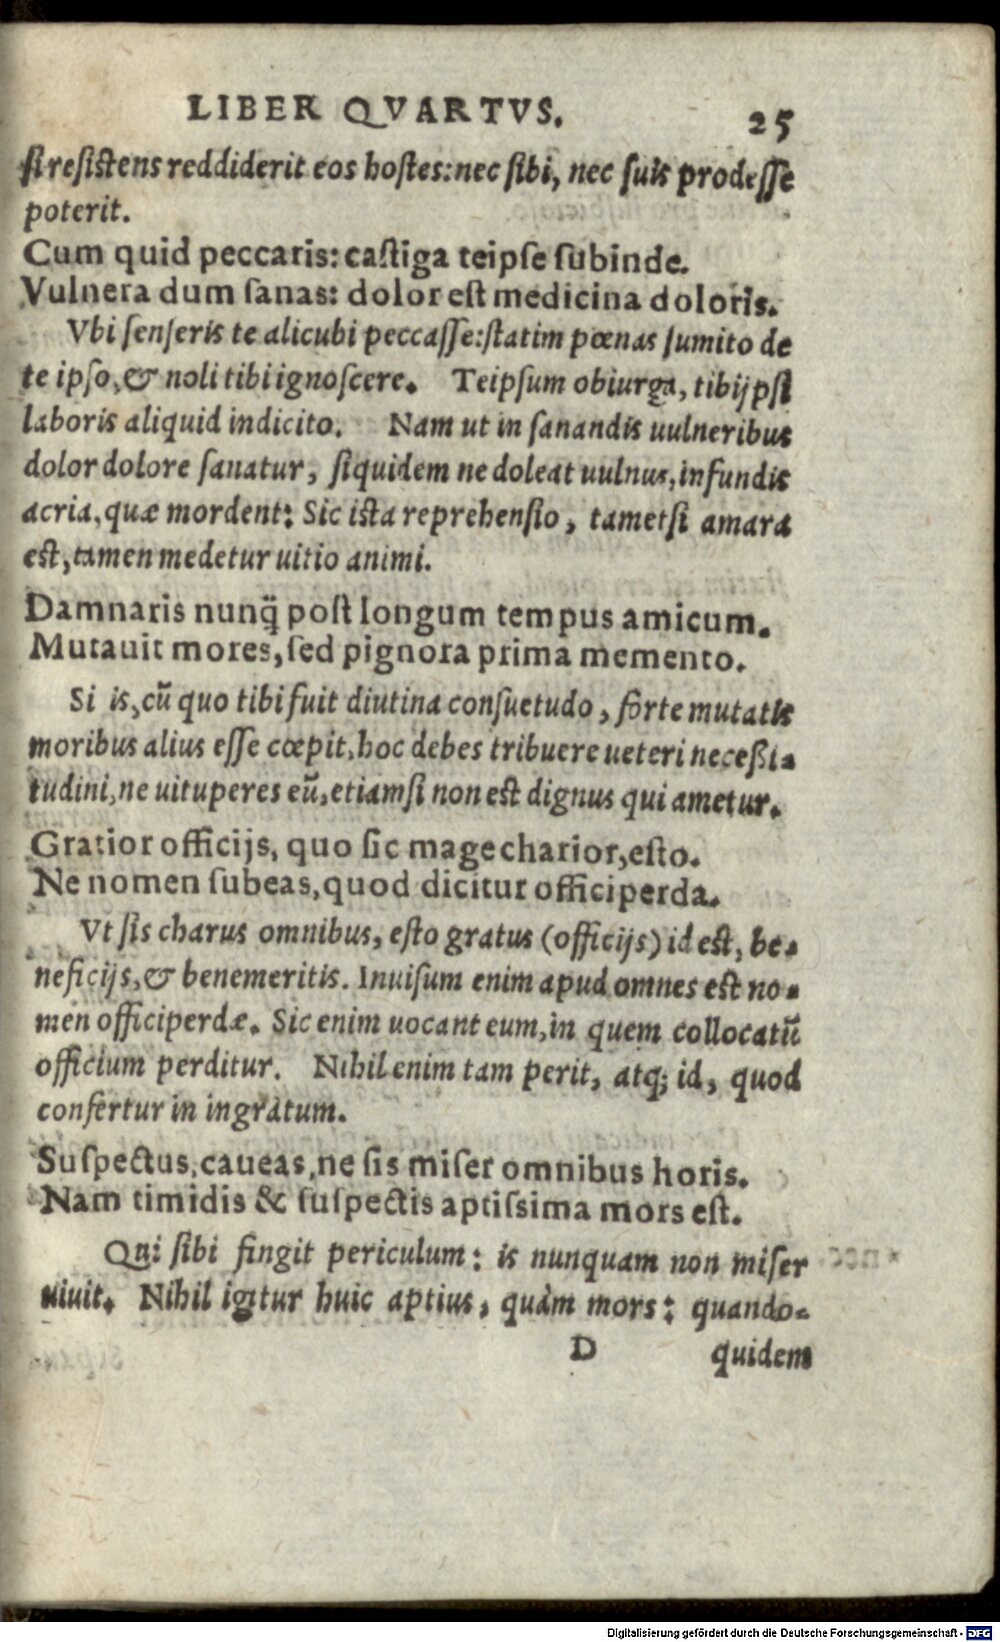 LIBER QVARTVS. 25
si resistens reddiderit eos hostes: nec sibi, nec suis prodesse
poterit.
Cum quid peccaris: castiga teipse subinde.
Vulnera dum sanas: dolor est medicina doloris.
Vbi senseris te alicubi peccasse: statim pœnas sumito de
te ipso, & noli tibi ignoscere. Teipsum obiurga, tibijpsi
laboris aliquid indicito. Nam ut in sanandis uulneribus
dolor dolore sanatur, siquidem ne doleat uulnus, infundis
acria, quæ mordent: Sic ista reprehensio, tametsi amara
est, tamen medetur uitio animi.
Damnaris nunq̃ post longum tempus amicum.
Mutauit mores, sed pignora prima memento.
Si is, cũ quo tibi fuit diutina consuetudo, forte mutatis
moribus alius esse cœpit, hoc debes tribuere ueteri necessi-
tudini, ne uituperes eũ, etiamsi non est dignus qui ametur.
Gratior officijs, quo sic mage charior, esto.
Ne nomen subeas, quod dicitur officiperda.
Vt sis charus omnibus, esto gratus (officijs) id est, be-
neficijs, & benemeritis. Inuisum enim apud omnes est no-
men officiperdæ. Sic enim uocant eum, in quem collocatũ
officium perditur. Nihil enim tam perit, atq; id, quod
confertur in ingratum.
Suspectus, caueas, ne sis miser omnibus horis.
Nam timidis & suspectis aptissima mors est.
Qui sibi fingit periculum: is nunquam non miser
uiuit. Nihil igitur huic aptius, quàm mors: quando-
D quidem
Digitalisierung gefördert durch die Deutsche Forschungsgemeinschaft - DFG